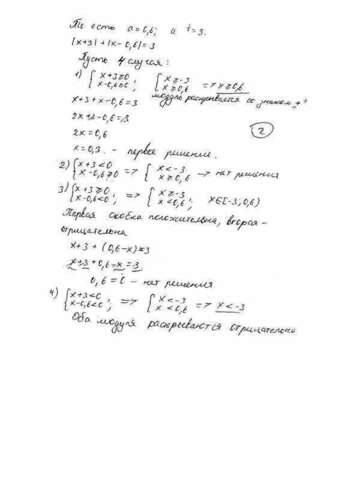 То есть a=0,6; а t=3.
|x+3|+|x-0,6|=3
Пусть 4 случая:
1) { x+3≥0 x-0,6≥0 ; { x≥-3 x≥0,6 => x≥0,6
модуль раскрывается со знаком "+"
x+3+x-0,6=3
2x+3-0,6=3
2
2x=0,6
x=0,3. - первое решение.
2) { x+3<0 x-0,6≥0 => { x<-3 x≥0,6 → нет решения
3) { x+3≥0 x-0,6<0 ; => { x≥-3 x<0,6 ; x∈[-3;0,6)
Первая скобка положительна, вторая-
отрицательна
x+3+(0,6-x)=3
x+3+0,6-x=3
0,6=0 - нет решения
4) { x+3<0 x-0,6<0 ; => { x<-3 x<0,6 => x<-3
Оба модуля раскрываются отрицательно